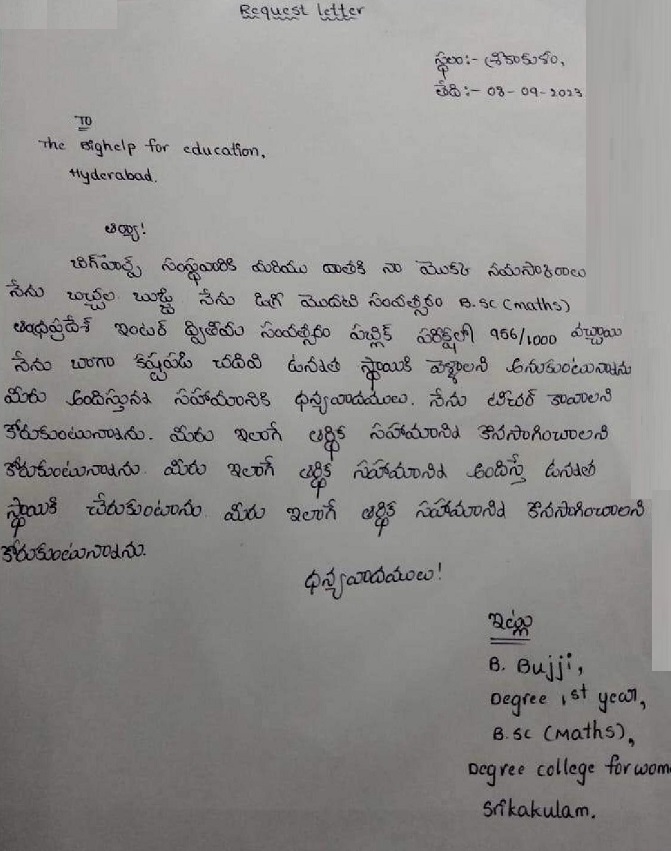 Request letter
స్థలం:- శ్రీకాకుళం,
తేది:- 08-09-2023
TO
The Bighelp for education,
Hyderabad.
అయ్యా!
బిగ్‌హెల్ప్ సంస్థవారికి మరియు దాతకి నా యొక్క నమస్కారాలు
నేను బచ్చల బుజ్జి నేను డిగ్రీ మొదటి సంవత్సరం B.sc (maths)
ఆంధ్రప్రదేశ్ ఇంటర్ ద్వితీయ సంవత్సరం పబ్లిక్ పరీక్షల్లో 956/1000 వచ్చాయి
నేను బాగా కష్టపడి చదివి ఉన్నత స్థాయికి వెళ్ళాలని అనుకుంటున్నాను
మీరు అందిస్తున్న సహాయానికి ధన్యవాదములు. నేను టీచర్ కావాలని
కోరుకుంటున్నాను. మీరు ఇలాగే ఆర్థిక సహాయాన్ని కొనసాగించాలని
కోరుకుంటున్నాను. మీరు ఇలాగే ఆర్థిక సహాయాన్ని అందిస్తే ఉన్నత
స్థాయికి చేరుకుంటాను. మీరు ఇలాగే ఆర్థిక సహాయాన్ని కొనసాగించాలని
కోరుకుంటున్నాను.
ధన్యవాదములు!
ఇట్లు
B. Bujji,
Degree 1st year,
B.sc (Maths),
Degree college for wom
Srikakulam.